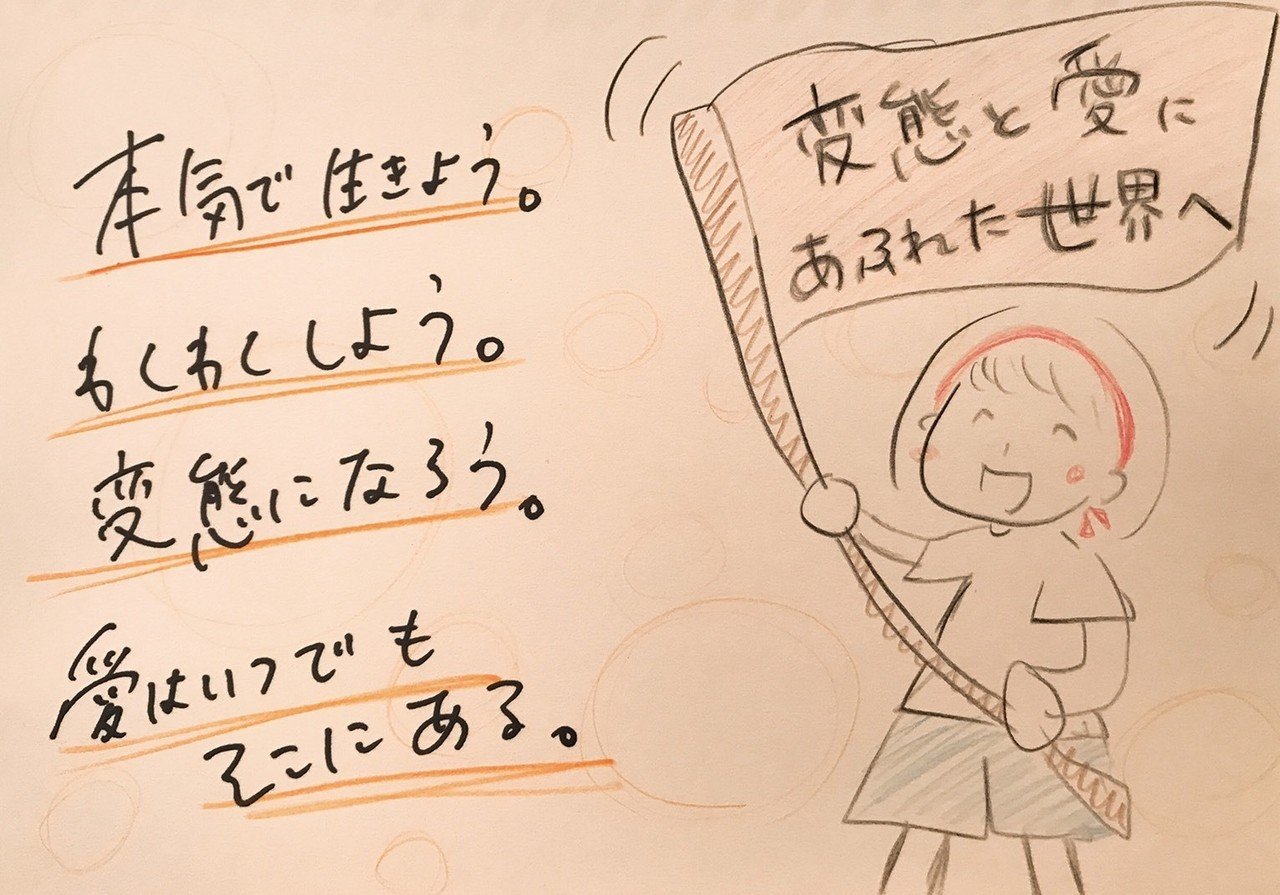 本気で生きよう。
わくわくしよう。
変態になろう。
愛はいつでも
そこにある。
変態と愛に
あふれた世界へ